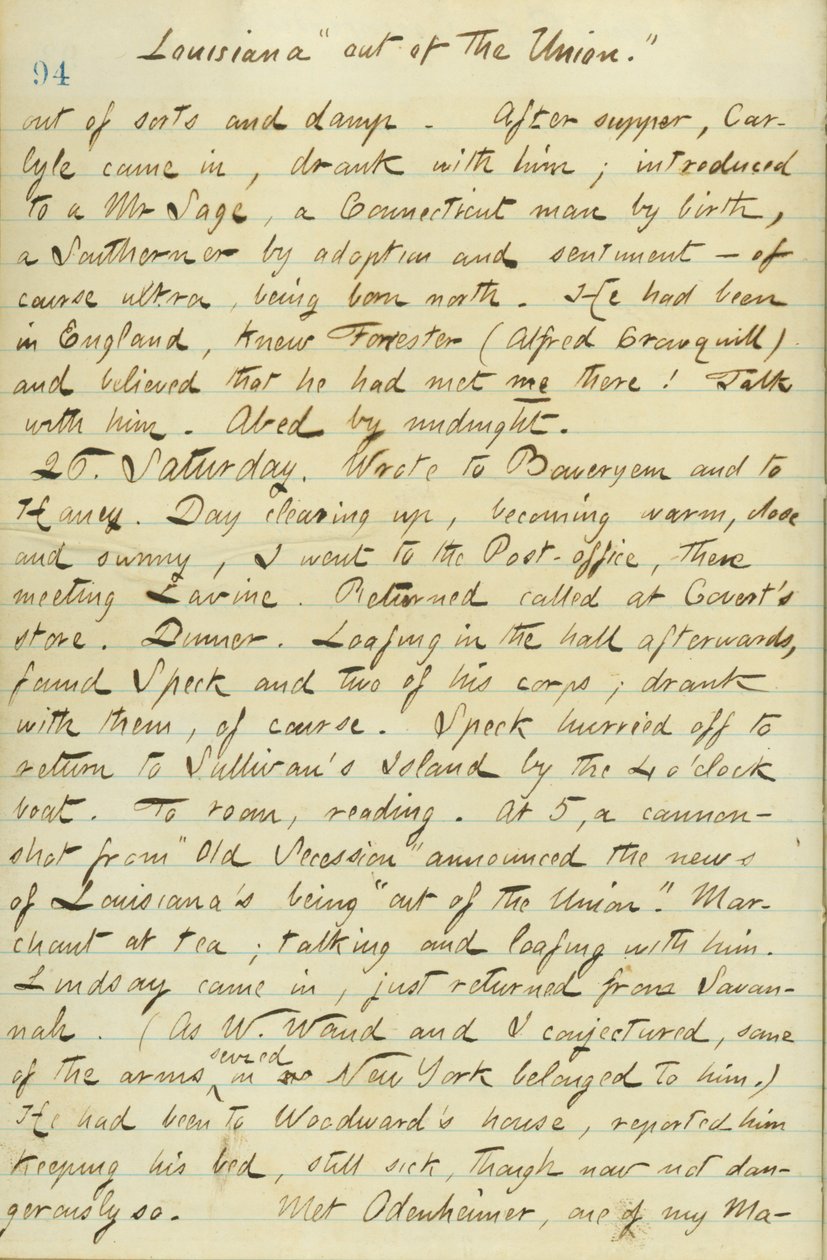 Louisiana "out of the Union."
94
out of sorts and damp. After supper, Car-
lyle came in, drank with him; introduced
to a Mr Sage, a Connecticut man by birth,
a Southerner by adoption and sentiment — of
course ultra, being born north. He had been
in England, knew Forrester (Alfred Crowquill)
and believed that he had met me there! Talk
with him. Abed by midnight.
26. Saturday. Wrote to Boweryem and to
Haney. Day clearing up, becoming warm, close
and sunny, I went to the Post-office, there
meeting Lavine. Returned called at Covert's
store. Dinner. Loafing in the hall afterwards,
found Speck and two of his corps; drank
with them, of course. Speck hurried off to
return to Sullivan's Island by the 4 o'clock
boat. To room, reading. At 5, a cannon-
shot from "Old Secession" announced the news
of Louisiana's being "out of the Union". Mar-
chant at tea; talking and loafing with him.
Lindsay came in, just returned from Savan-
nah. (As W. Waud and I conjectured, some
of the arms seized in New York belonged to him.)
He had been to Woodward's house, reported him
keeping his bed, still sick, though now not dan-
gerously so. Met Odenheimer, one of my Ma-